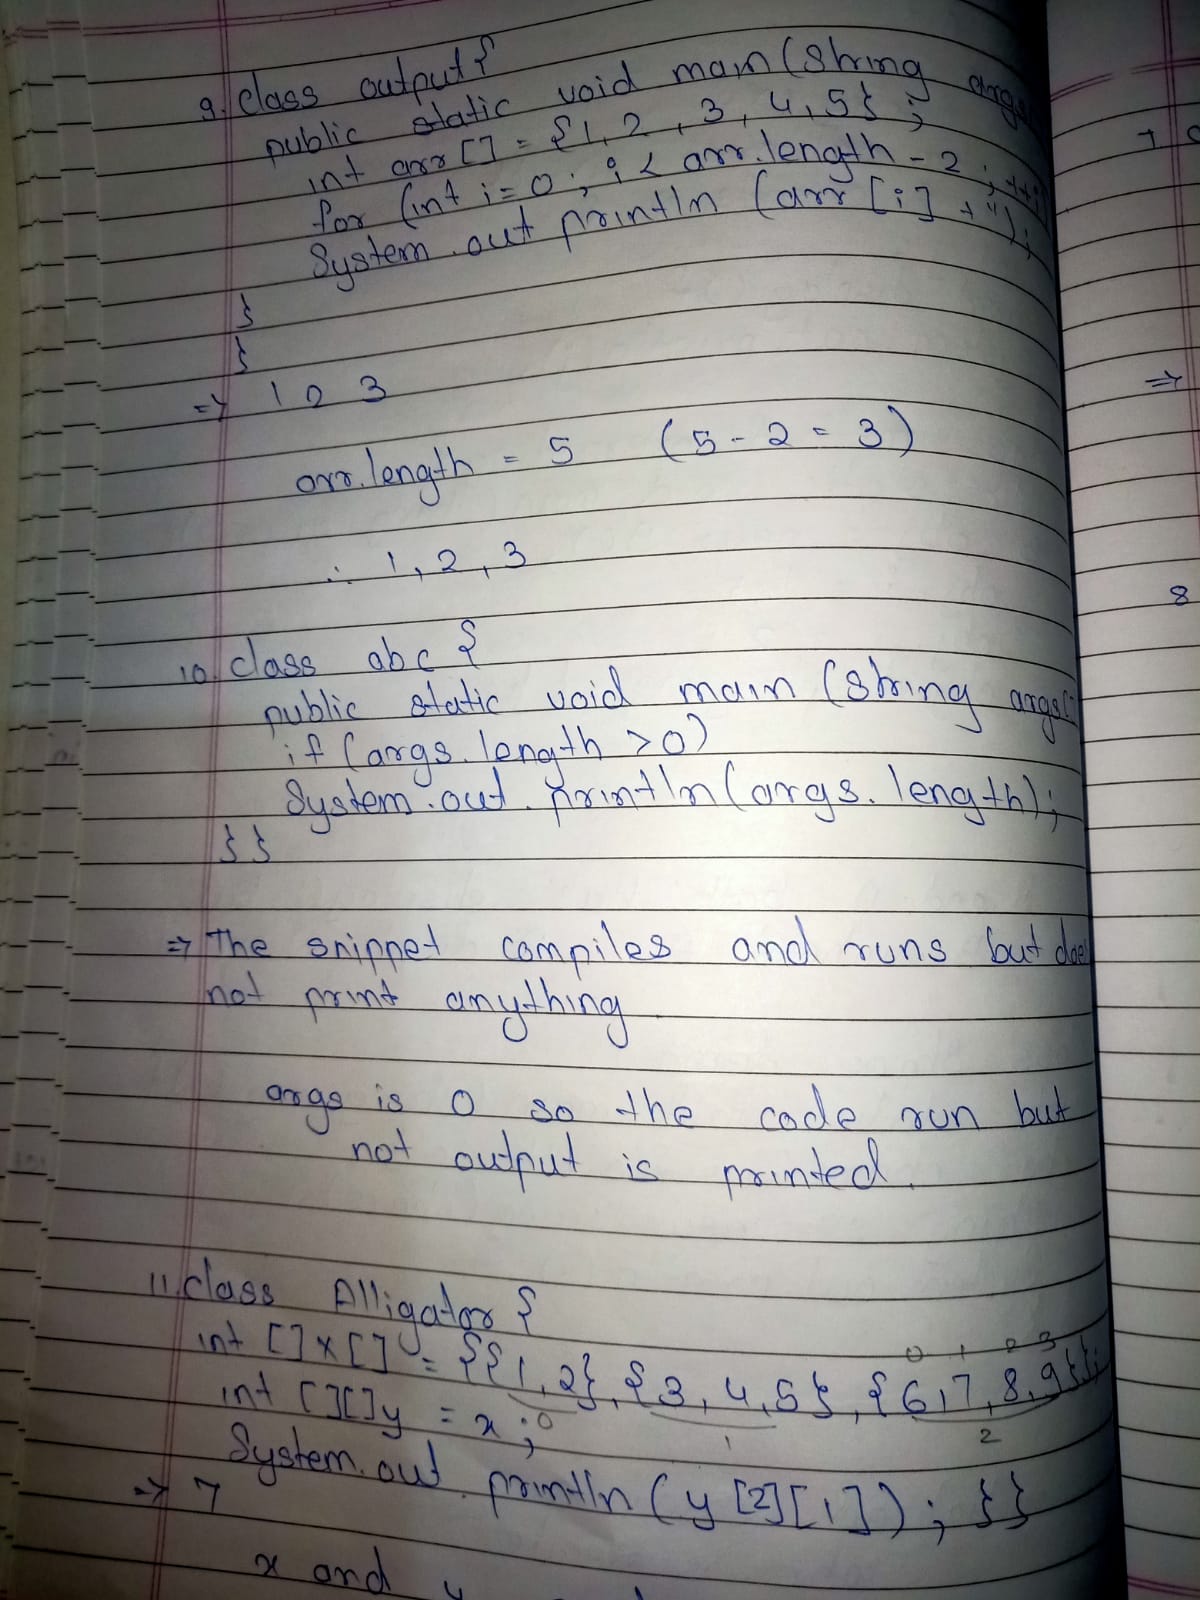 9. class output {
public static void main (String args
int arr [] = {1, 2, 3, 4, 5} ;
for (int i = 0 ; i < arr.length - 2 ; ++i
System.out println (arr [i] + " ) ;
}
}
=> 1 2 3
arr.length = 5 (5 - 2 = 3)
∴ 1, 2, 3
10. class abc {
public static void main (String args[
if (args.length > 0)
System.out.println (args.length) ;
} }
=> The snippet compiles and runs but does
not print anything
args is 0 so the code run but
not output is printed.
11. class Alligator {
0 1 2 3
int [] x [] = {{1, 2}, {3, 4, 5}, {6, 7, 8, 9}};
int [][] y = x ;
0 1 2
System.out.println (y [2] [1]) ; }}
=> 7
x and y